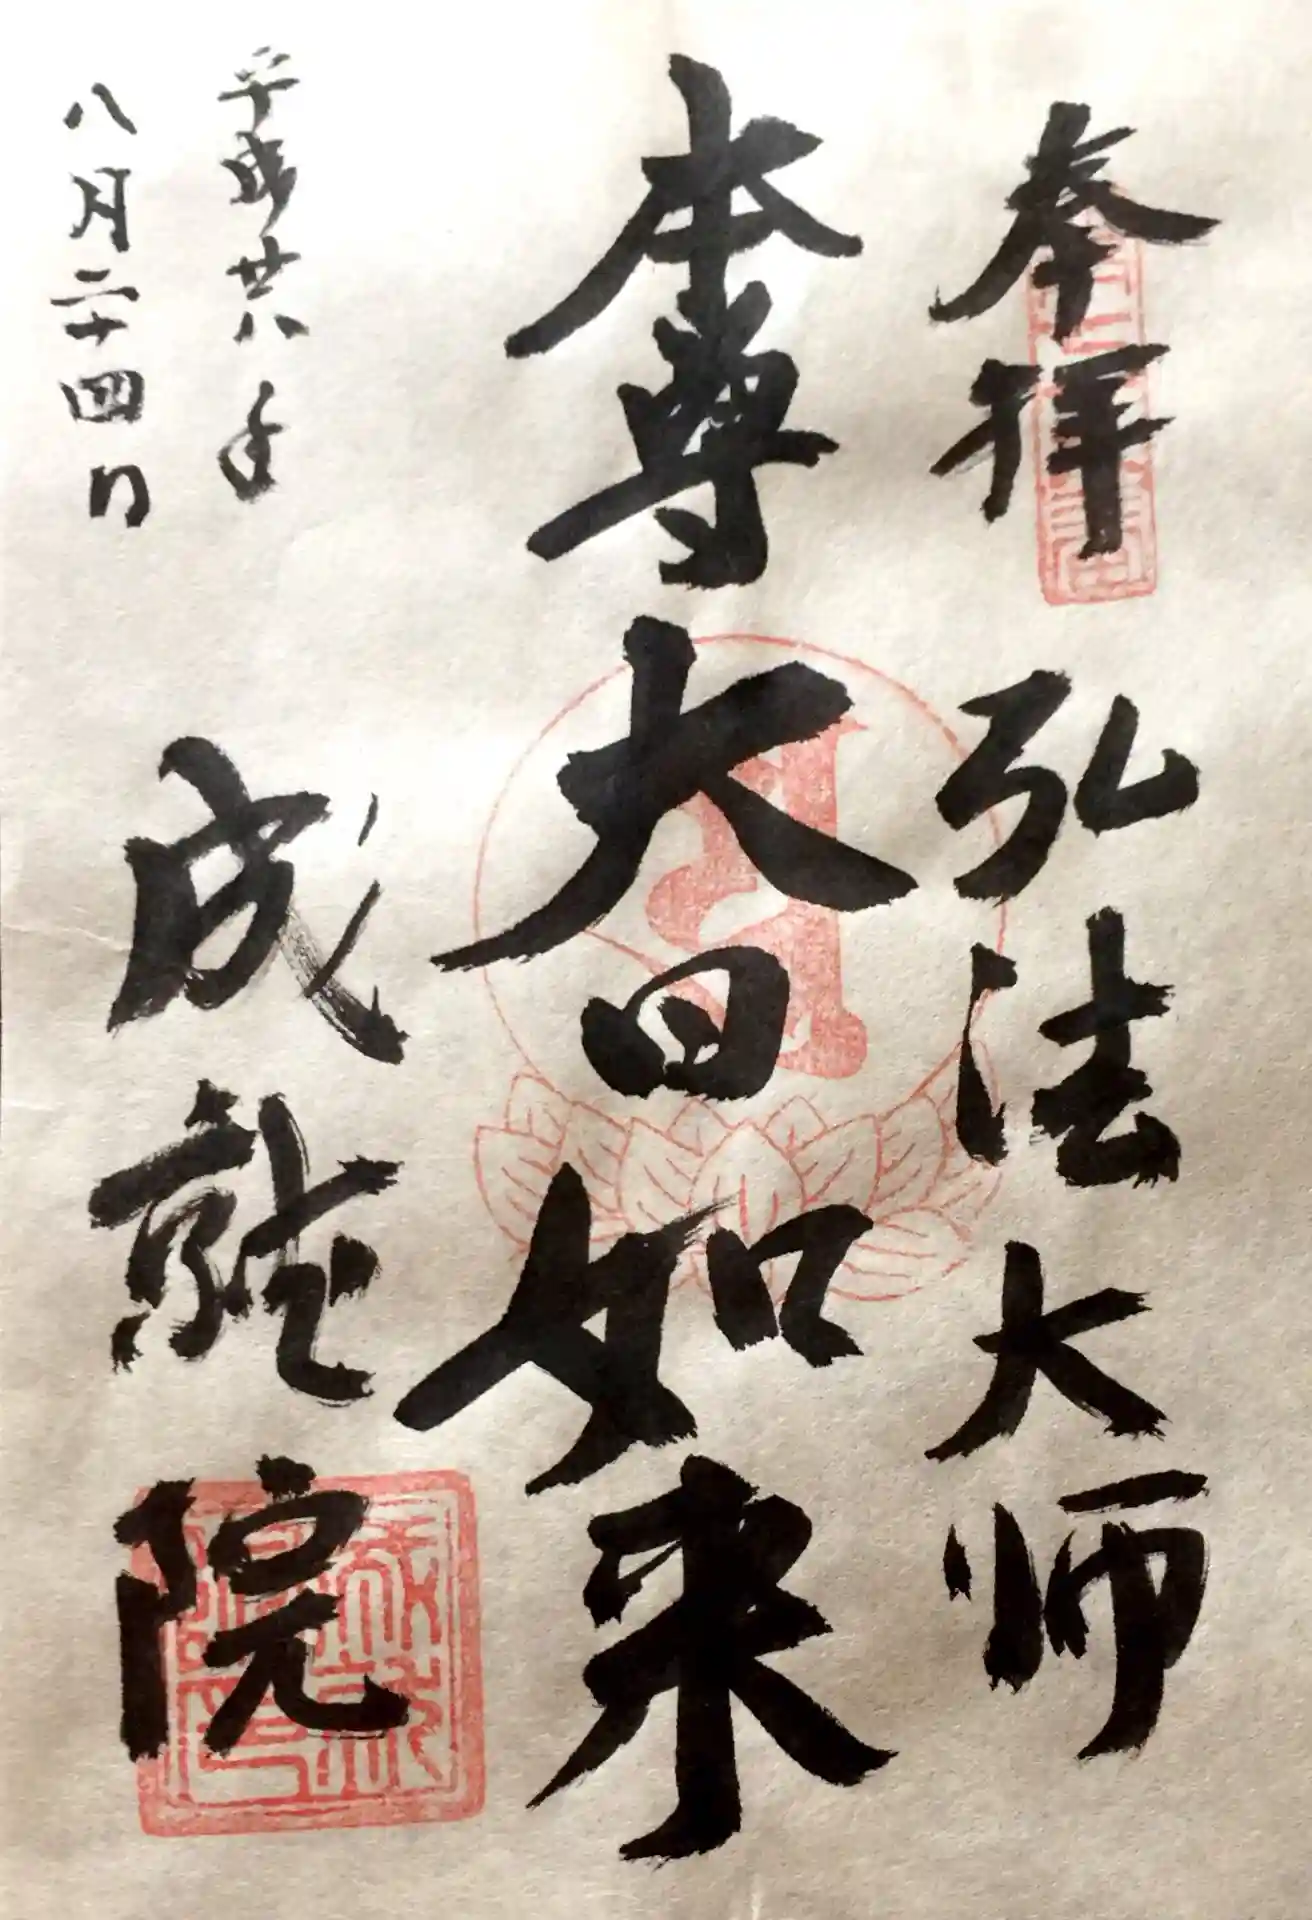 奉拝 弘法大師
本尊大日如来
平成廿八年
八月二十四日
成就院